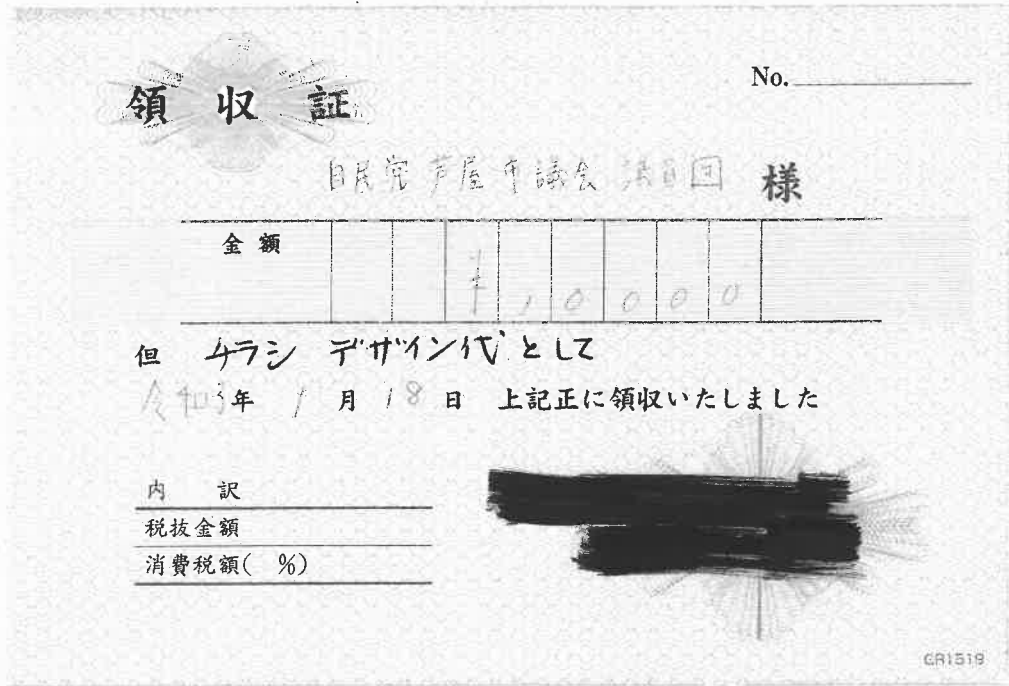 No.
領収証
自民党芦屋市議会議員団 様
金額 ¥10000
但 チラシ デザイン代として
令和3年 1月18日 上記正に領収いたしました
内訳
税抜金額
消費税額( %)
GR1519